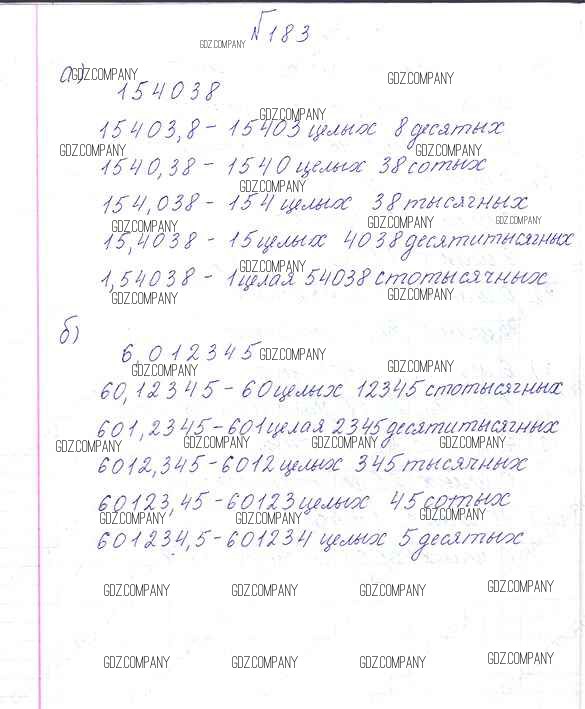 №183
GDZ.COMPANY
а)
GDZ.COMPANY GDZ.COMPANY
154038
GDZ.COMPANY
15403,8 - 15403 целых 8 десятых
GDZ.COMPANY GDZ.COMPANY
1540,38 - 1540 целых 38 сотых
GDZ.COMPANY
154,038 - 154 целых 38 тысячных
GDZ.COMPANY GDZ.COMPANY GDZ.COMPANY
15,4038 - 15 целых 4038 десятитысячных
GDZ.COMPANY
1,54038 - 1 целая 54038 стотысячных
GDZ.COMPANY GDZ.COMPANY
б)
6,012345 GDZ.COMPANY
GDZ.COMPANY GDZ.COMPANY
60,12345 - 60 целых 12345 стотысячных
601,2345 - 601 целая 2345 десятитысячных
GDZ.COMPANY GDZ.COMPANY GDZ.COMPANY GDZ.COMPANY
6012,345 - 6012 целых 345 тысячных
60123,45 - 60123 целых 45 сотых
GDZ.COMPANY GDZ.COMPANY GDZ.COMPANY
601234,5 - 601234 целых 5 десятых
GDZ.COMPANY GDZ.COMPANY GDZ.COMPANY GDZ.COMPANY
GDZ.COMPANY GDZ.COMPANY GDZ.COMPANY GDZ.COMPANY